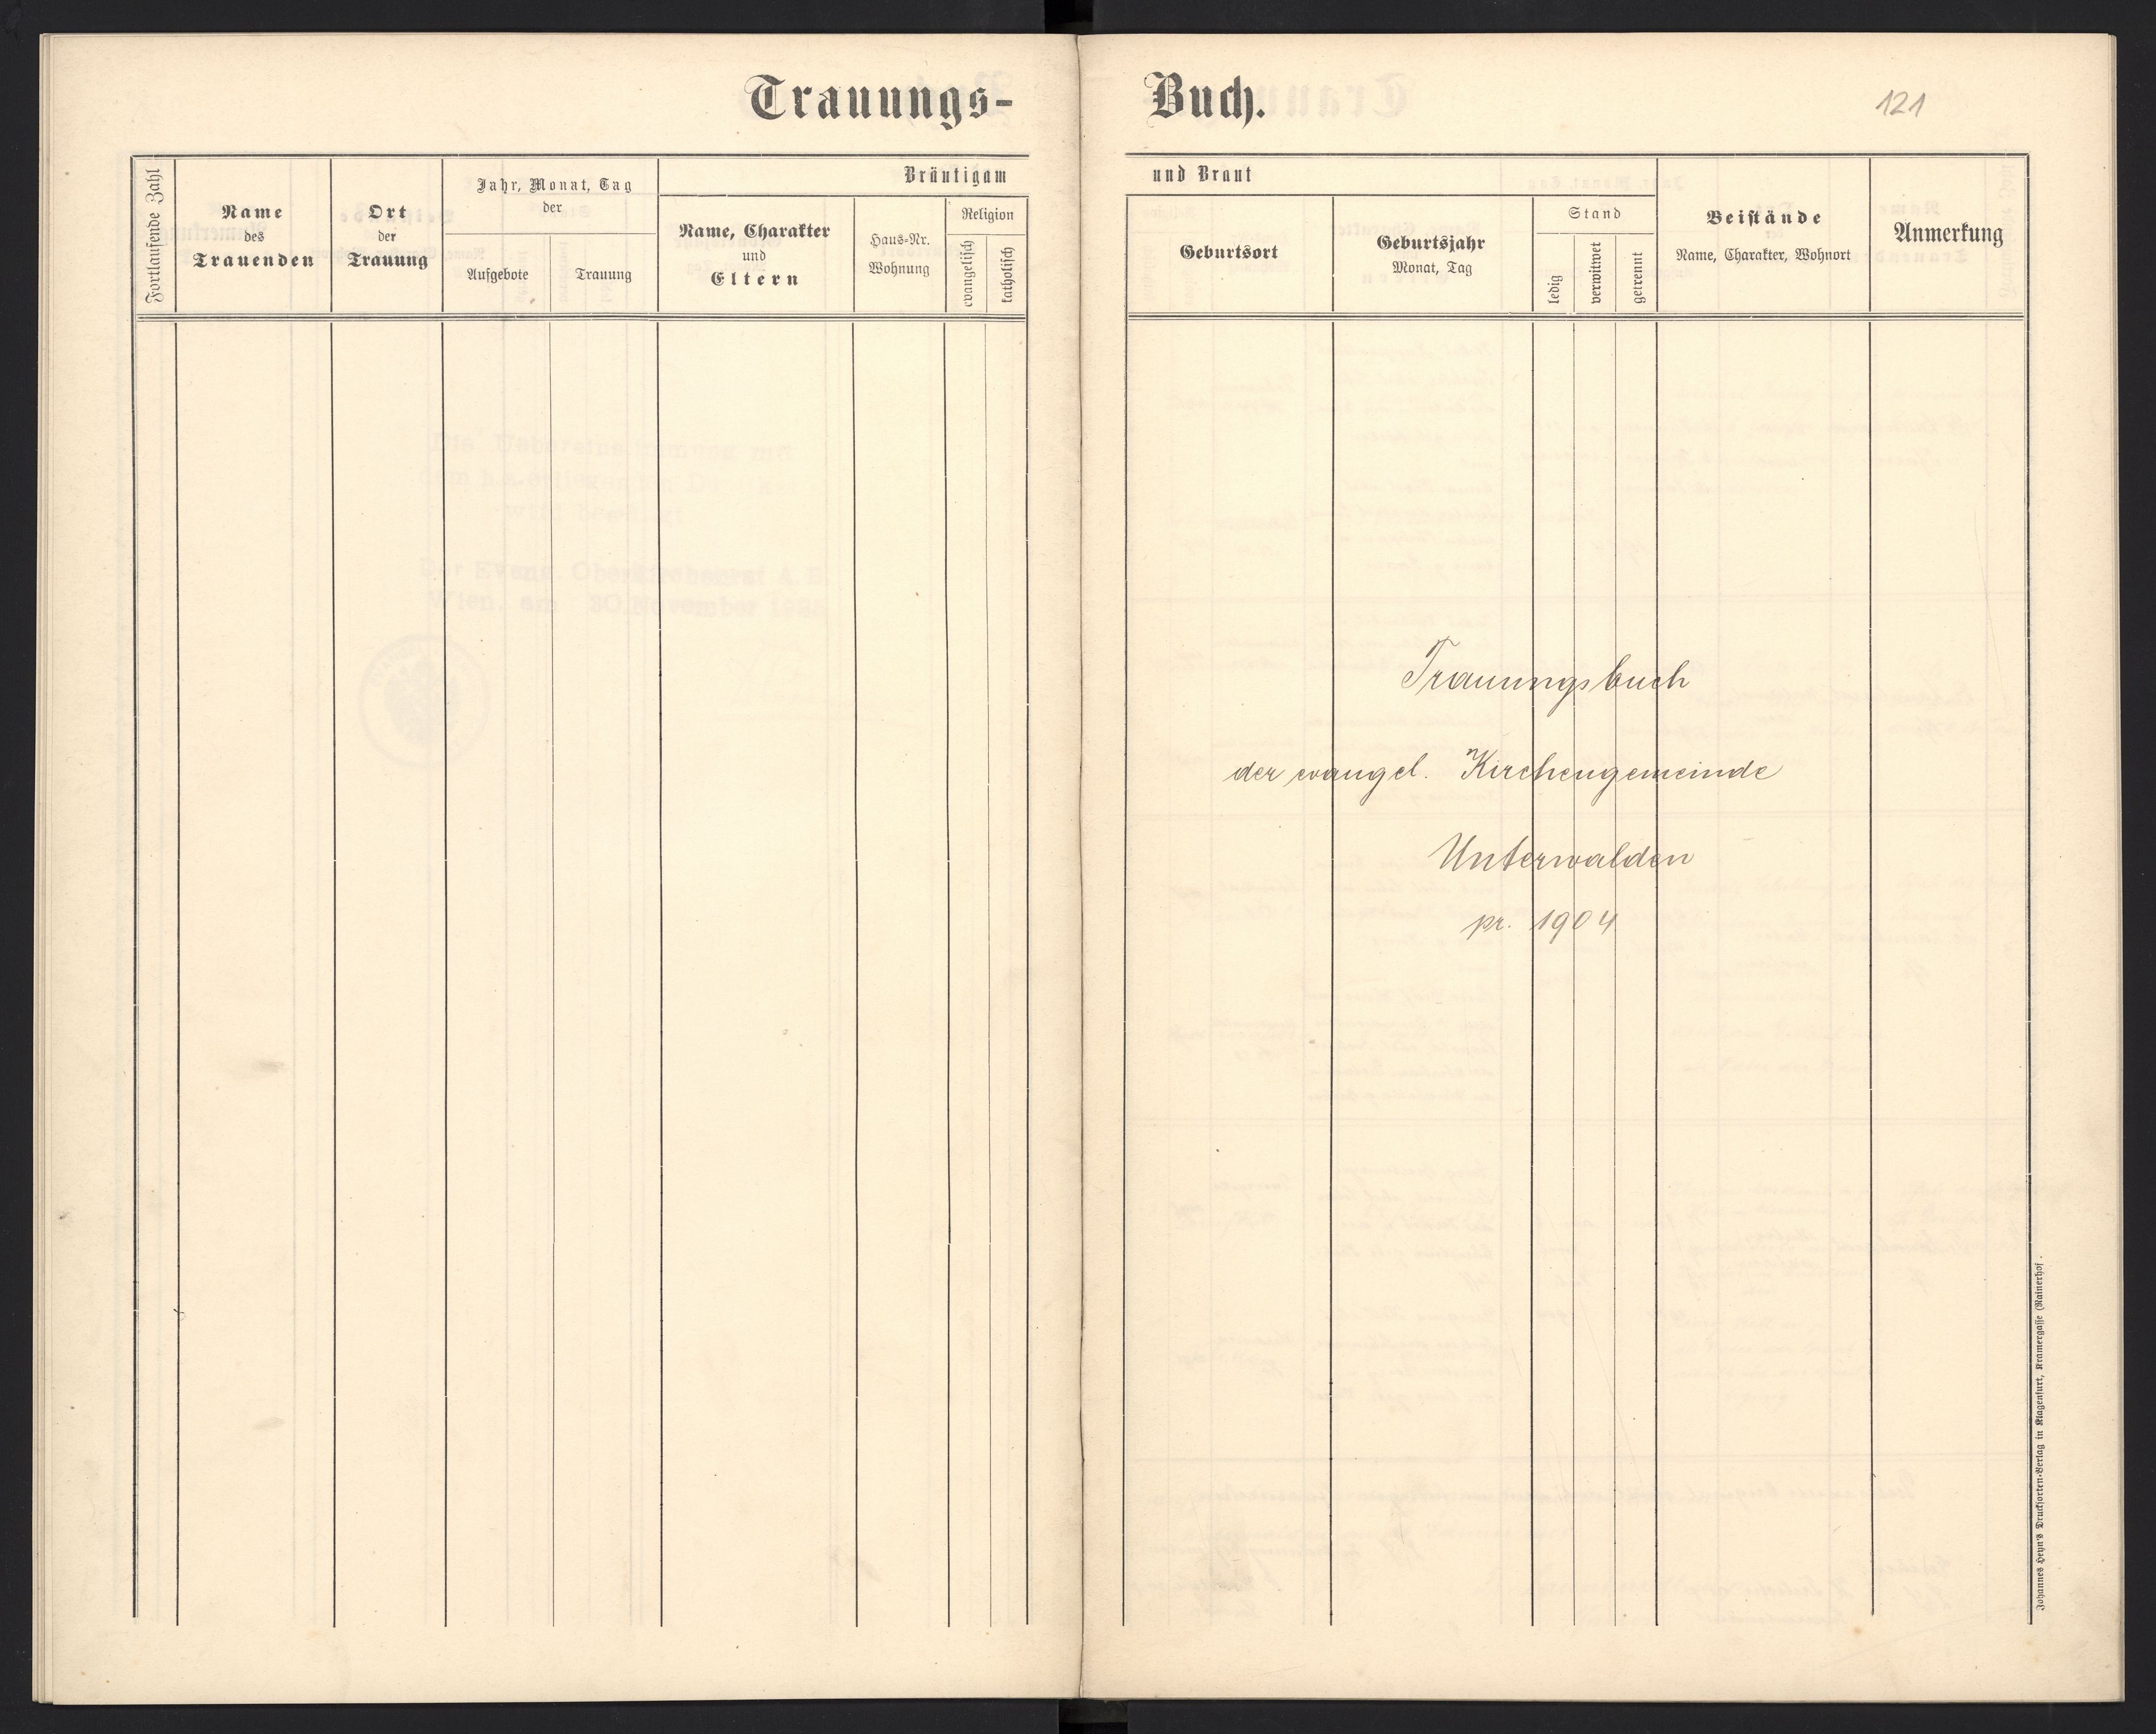 Trauungs-
Fortlaufende Zahl
Name
des
Trauenden
Ort
der
Trauung
Jahr, Monat, Tag
der
Aufgebote
Trauung
Bräutigam
Name, Charakter
und
Eltern
Haus-Nr.
Wohnung
Religion
evangelisch
katholisch
Buch.
121
und Braut
Geburtsort
Geburtsjahr
Monat, Tag
Stand
ledig
verwitwet
getrennt
Beistände
Name, Charakter, Wohnort
Anmerkung
Trauungsbuch
der evangel. Kirchengemeinde
Unterwalden
pr. 1904
Johannes Heyn's Drucksorten-Verlag in Klagenfurt, Kramergasse (Rainerhof.